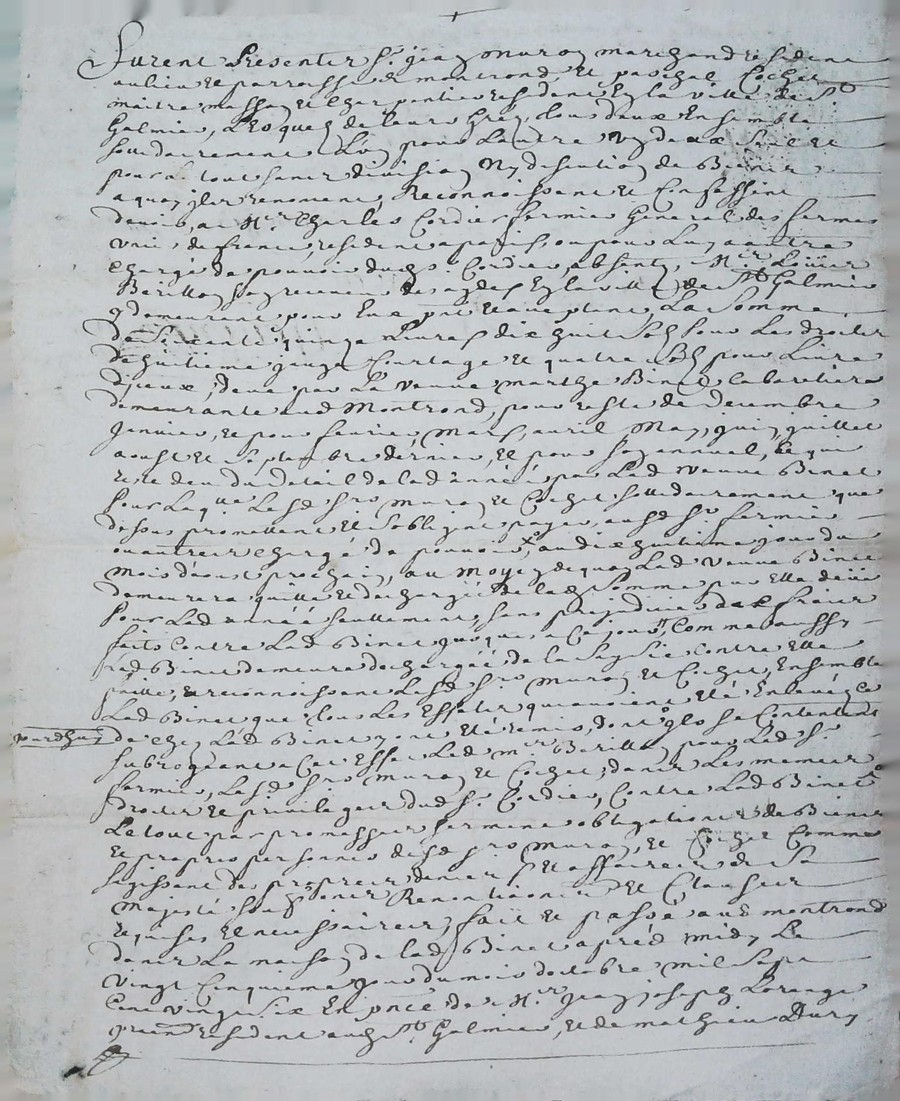 Furent Presents Sr. jean muron marchand residant
au lieu et parroisse de montrond, et paschal Cochet
maitre masson et charpentier residant en la ville de St
Galmier, Lesquels de leurs grez tous deux Ensemble
sollidairement Lun pour Lautre un deux seul et
pour le tout sans division ny discution de Biens
a quoy ils renoncent, Reconnoissent et Confessent
devoir, a Mr. Charles Cordier fermier General des fermes
unies de france, residant a paris, ou pour Luy a autre
chargé de pouvoir dud Sr. Cordier, absent, Mr. Louis
Berillon receveur des aydes En la ville de St Galmier
y demeurant pour Luy pnt et acceptant, La Somme
de Soixante quinze Livres dix huit Sols pour Les droits
de huitieme jauge Courtage et quatre Sols pour Livre
d'jceux, deue par La veuve marthe Binet cabaretiere
demeurante aud Montrond, pour reste de decembre
janvier, et pour fevrier, Mars, avril May, juin, juillet
aoust et Septembre dernier, et pour Son annuel, ce qui
reste deu du detail de lad année, par Lad veuve Binet
pour Laquelle Lesd Srs muron et Cochet sollidairement que
dessus promettent et Sobligent payer, aud Sr. fermier
ou autres chargé de pouvoir, au dix huitieme jour du
mois d'aoust prochain, au moyen de quoy Lad veuve Binet
demeurera quitte et dechargée de lad Somme par Elle deüe
pour Lad année seullement, sans prejudice des frais
faits Contre Lad Binet jusques a Ce jour, Comme aussy
Lad Binet demeure dechargée de la Saysie Contre Elle
faitte, et reconnoissent Lesd Srs muron et Cochet, Ensemble
Lad Binet que tous Les Effets qui avoient Eté Enlevés Ce
jourdhuy de chez Lad Binet y ont Eté remis, dont ils se Contentent
subrogeant a Cet Effet Led mr. Berillon pour Led Sr.
fermier, Lesd Srs muron et Cochet, dans Les memes
droits et privileges dud Sr. Cordier, Contre Lad Binet
Le tout par promesses serment obligations de Biens
Et propres personnes desd Srs muron, et Cochet Comme
sagissant des propres deniers et affaires de Sa
Majesté sous Renontiations et Clauses
requises et necessaires, fait et passé aud montrond
dans La maison de lad Binet aprés midy Le
vingt Cinquieme jour du mois doctobre mil Sept
Cent vingt Six En pnce de Mr. jean joseph Lorange
resident aud St Galmier, et de mathieu Dury